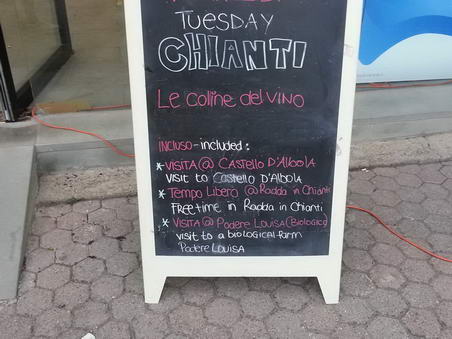 TUESDAY
CHIANTI
Le colline del vino
INCLUSO - included:
* VISITA @ CASTELLO D'Albola
VISIT to Castello D'Albola
* Tempo Libero @ Radda in Chianti
FREEtime in Radda in Chianti
* VISITA @ Podere Louisa (Biologico)
visit to a biological farm
Podere Louisa